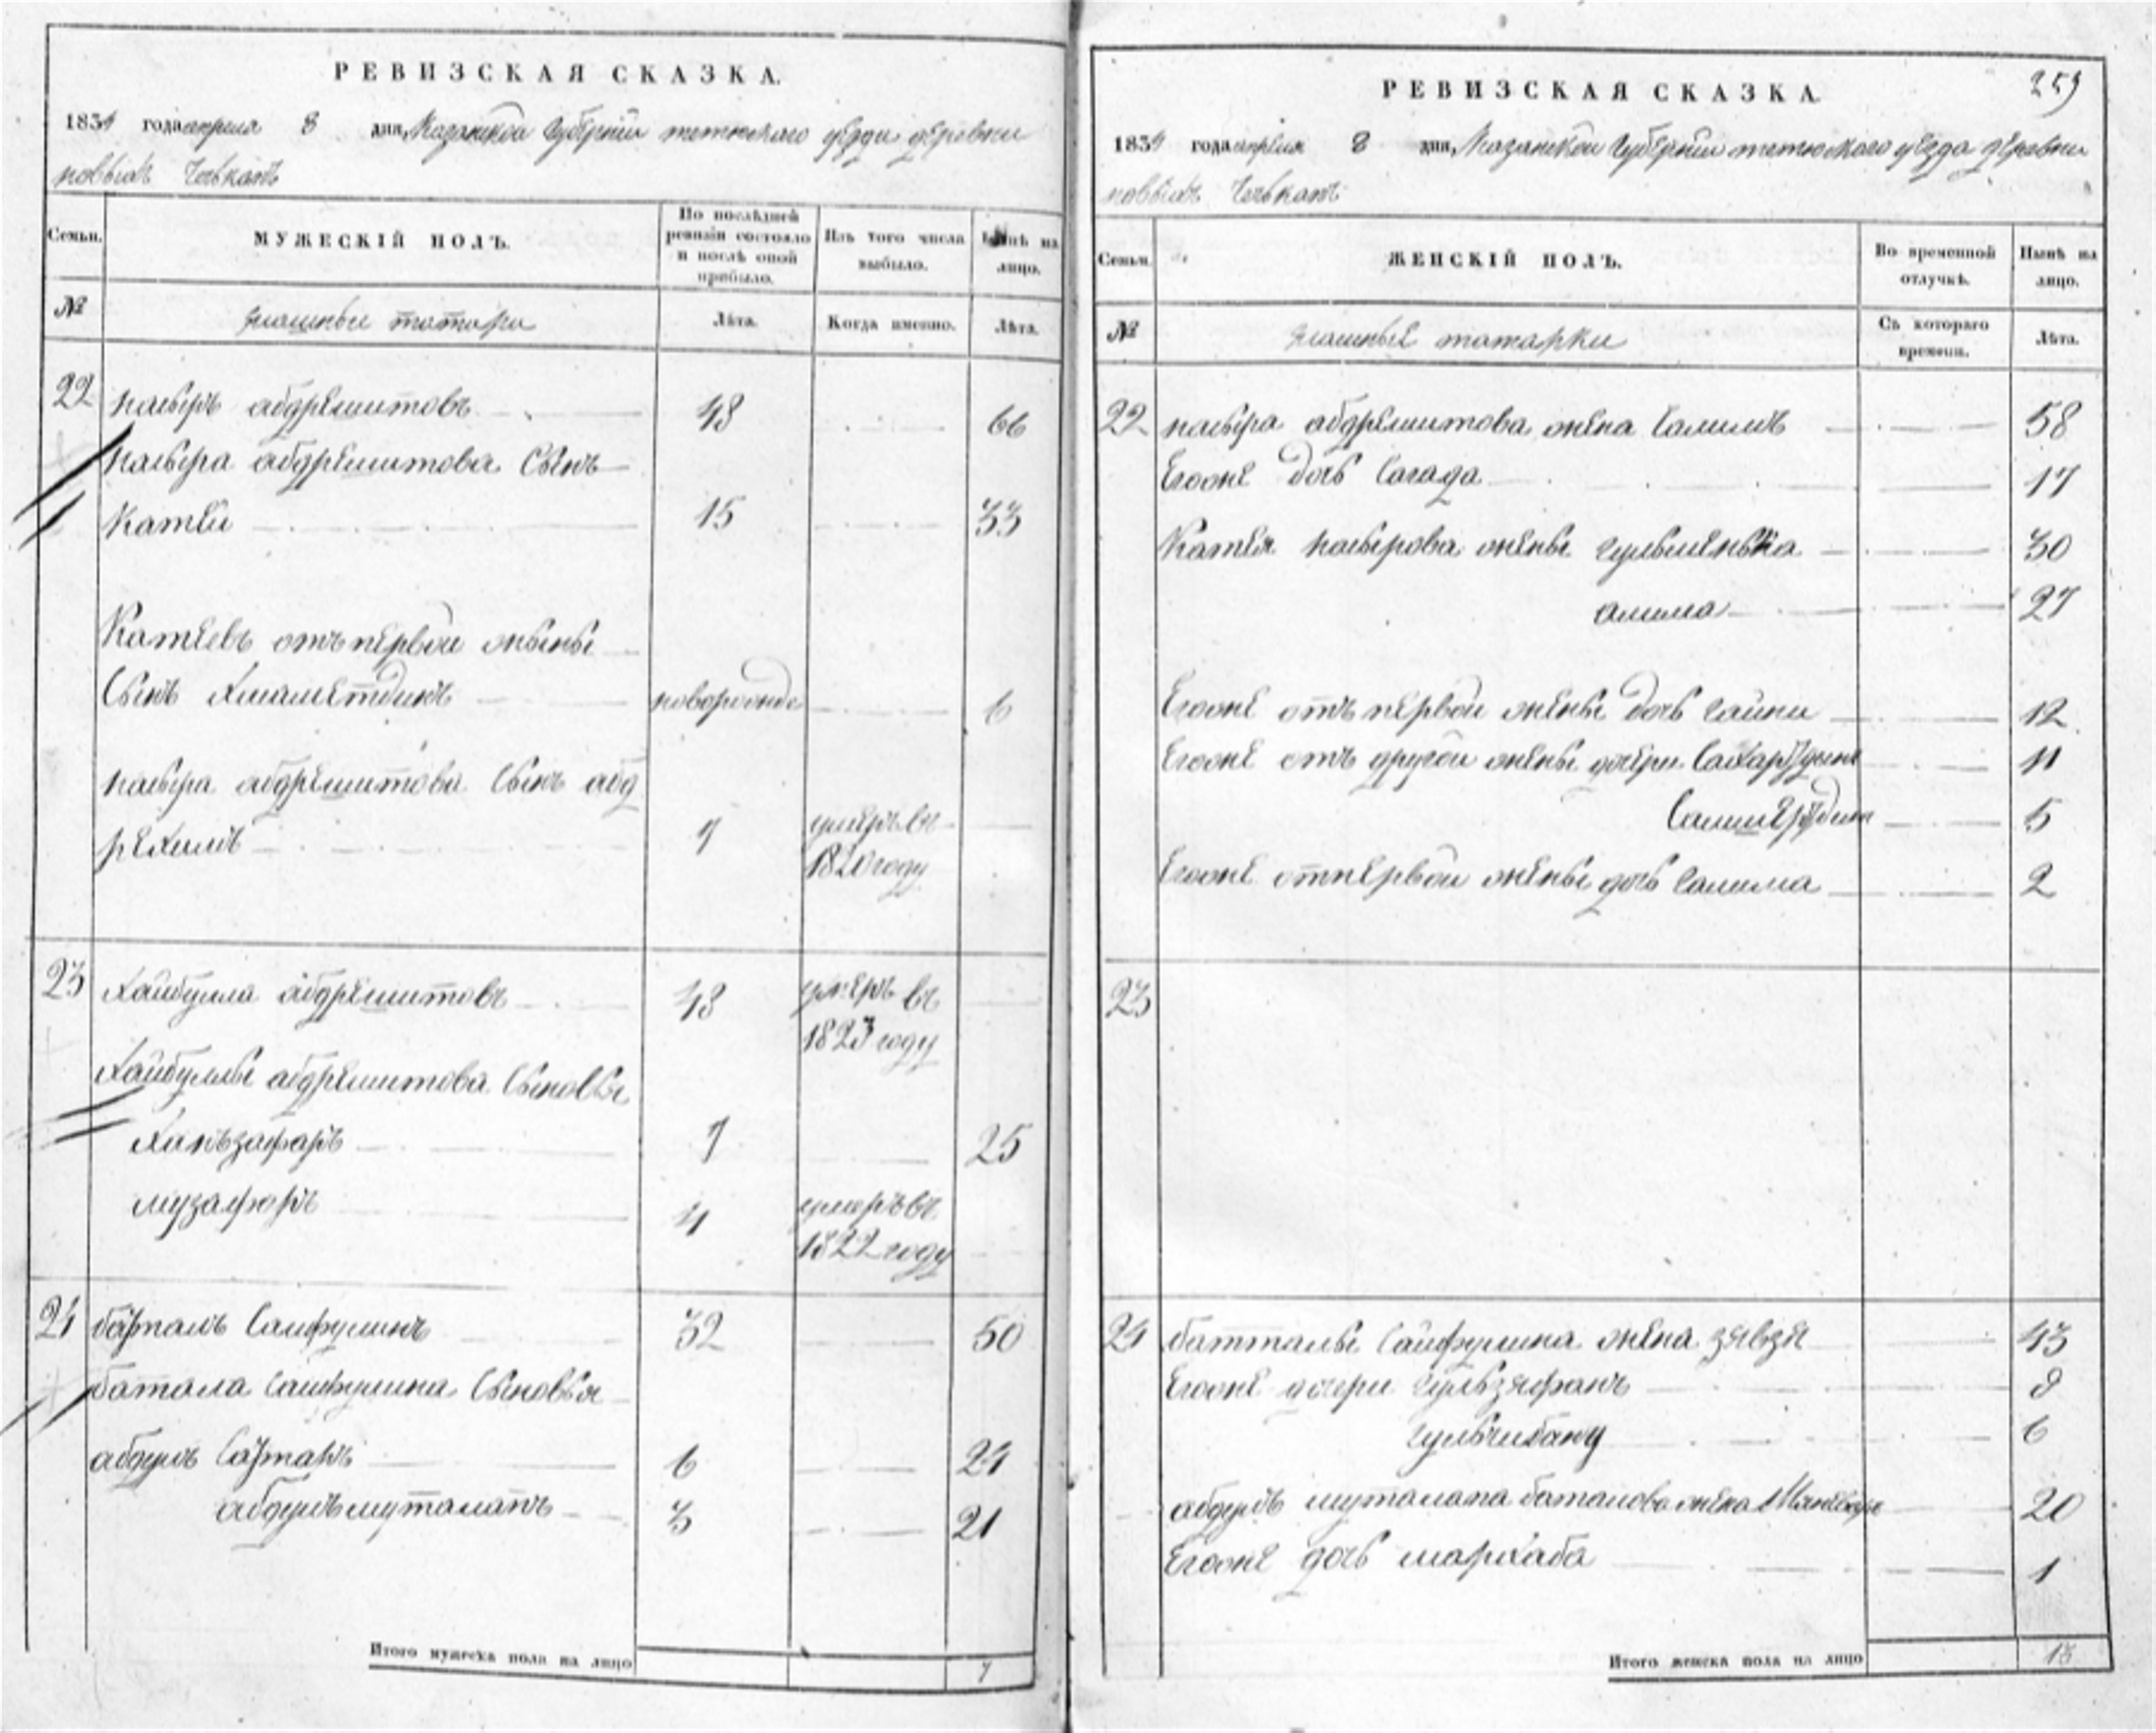 РЕВИЗСКАЯ СКАЗКА.
1834 года апреля 8 дня, Казанской Губернии тетюшаго уезда деревни
новыхъ Чечкапъ
Семьи.
МУЖЕСКІЙ ПОЛЪ.
По послѣдней ревизіи состояло и послѣ оной прибыло.
Изъ того числа выбыло.
Нынѣ на лицо.
№
татары
Лѣта.
Когда именно.
Лѣта.
22 насыръ абдрешитовъ 48 66
насыра абдрешитова Сынъ
Катей 15 33
Катеевъ отъ первой жены
Сынъ Хисаметдинъ новорожде 6
насыра абдрешитова Сынъ абд
рехимъ 7 умеръ въ
1820 году
23 Хайбулла абдрешитовъ 48 умеръ въ
1823 году
Хайбуллы абдрешитова Сыновья
Ханъзафаръ 7 25
музафаръ 4 умеръ въ
1822 году
24 батталъ Сайфулинъ 32 50
батала Сайфулина Сыновья
абдулъ Сатаръ 6 24
абдулъ муталапъ 3 21
Итого мужеска пола на лицо 7
259
РЕВИЗСКАЯ СКАЗКА
1834 года апреля 8 дня, Казанской Губернии тетюшкаго уезда деревни
новыхъ Чечкапъ
Семьи.
ЖЕНСКІЙ ПОЛЪ.
Во временной отлучкѣ.
Нынѣ на лицо.
№
татарки
Съ котораго времени.
Лѣта.
22 насыра абдрешитова жена Салимъ 58
Егоже дочь Сагада 17
Катея насырова жены 30
алима 27
Егоже отъ первой жены дочь 12
Егоже отъ другой жены дочери 11
5
Егоже отпервой жены дочь Салима 2
23
24 батталы Сайфулина жена зявзя 43
Егоже дочери гульзяфанъ 8
гульчибану 6
абдулъ муталапа баталова жена 20
Егоже дочь шархаба 1
Итого женска пола на лицо 13